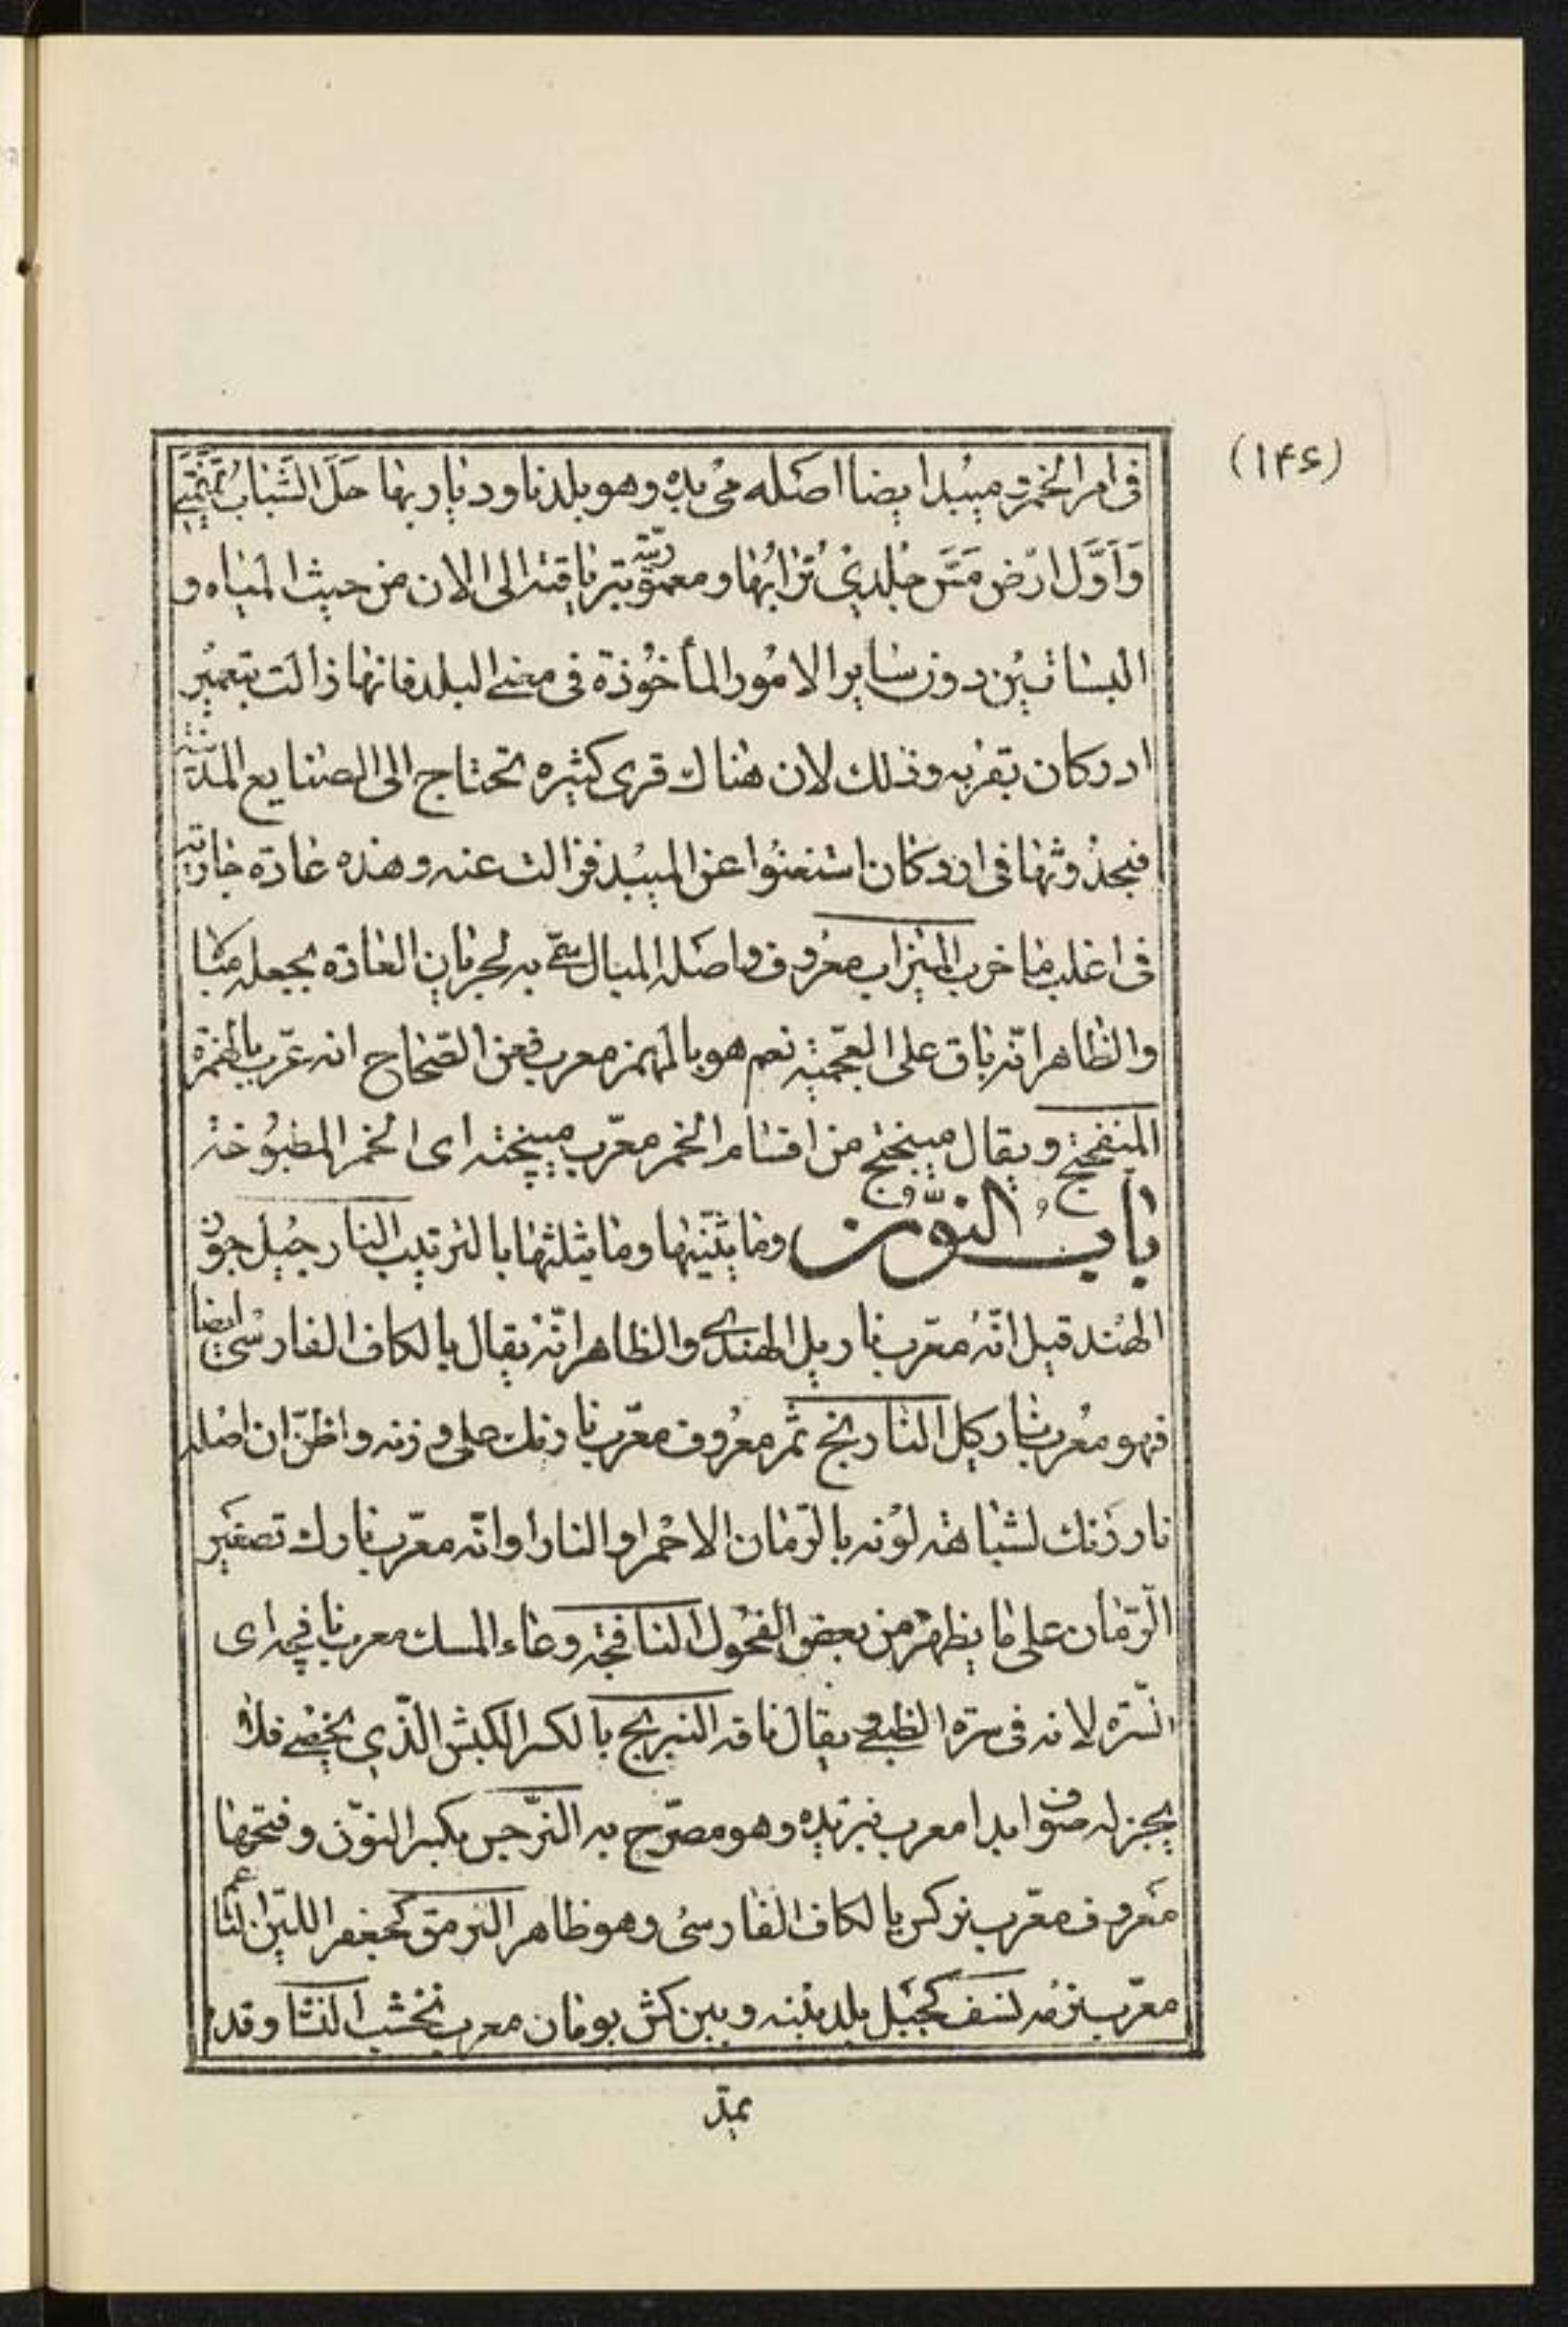 (۱۴۶)
فى امر الخمر و ميبد ايضا اصله مى بده وهو بلدنا و ديار بها حَلَّ الشَباب
وَاَوَّل ارض مَسَّ جلدي تُرابُها و معموريّته باقية الى الان من حيث المياه و
البساتين دون ساير الامور المأخوذة فى معنى البلد فانها زالت بتعمير
اردكان بقربه وذلك لان هناك قرى كثيره تحتاج الى الصنايع المدنية
فبحدوثها فى اردكان استغنوا عن الميبد فزالت عنه وهذه عادة جارية
فى اغلب ما خرب الميزاب معروف واصله الميال سمّى به لجريان العادة بجعله
والظاهر انّه باق على العجميّة نعم هو بالهمز معرب فعن الصّحاح انه عرّب بالهمزة
المنفحتج و يقال ميبختج من اقسام الخمر معرّب ميپخته اى الخمر المطبوخة
باب النوّن وما يثنّيها وما يثلثها بالترتيب النارجيل جوز
الهند قيل انّه معّرب ناريل الهندى والظاهر انّه يقال بالكاف الفارسى ايضا
فهو معرب ناركيل النارنج ثمر معروف معّرب نارنك على وزنه واظنّ ان اصله
ناررنك لشباهة لونه بالرّمان الاحمر او النار او انّه معّرب نارك تصغير
الرّمان على ما يظهر من بعض الفحول النافجة وعاء المسك معرب نافچه اى
السّرّه لانه فى سرّة الظبى و يقال نافه النبريج بالكسر الكبش الّذى يخصى فلا
يجز له صوف ابدا معرب نبريده وهو مصرّح به النّرجس بكسر النوّن وفتحها
معروف معّرب نركس بالكاف الفارسى وهو ظاهر النرمق كجعفر الليّن الناعم
معرّب نرمه نسف كجبل بلد بينه و بين كش يومان معرب نخشب النشا وقد
يمد